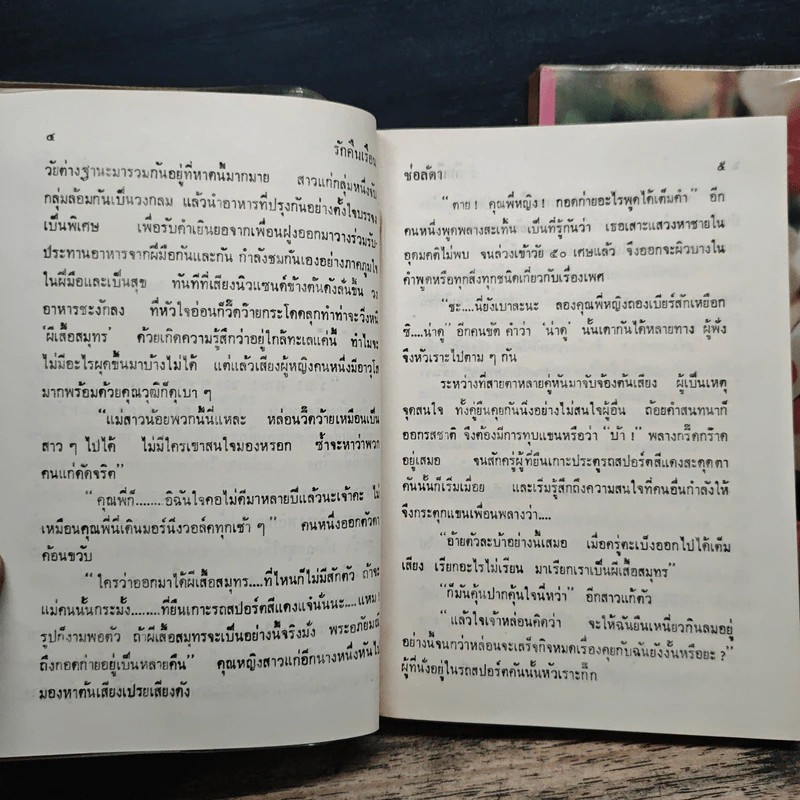 ๔ รักคืนเรือน
วัยต่างฐานะมารวมกันอยู่ที่หาดนี้มากมาย สาวแก่กลุ่มหนึ่งจับ
กลุ่มล้อมกันเป็นวงกลม แล้วนำอาหารที่ปรุงกันอย่างตั้งใจบรรจง
เป็นพิเศษ เพื่อรับคำเยินยอจากเพื่อนฝูงออกมาวางร่วมรับ-
ประทานอาหารจากฝีมือกันและกัน กำลังชมกันเองอย่างภาคภูมิใจ
ในฝีมือและเป็นสุข ทันทีที่เสียงนิวแซนด์ข้างต้นดังลั่นขึ้น วง
อาหารชะงักลง ที่หัวใจอ่อนก็วี๊ดว๊ายกระโดดลุกทำท่าจะวิ่งหนี
‘ผีเสื้อสมุทร’ ด้วยเกิดความรู้สึกว่าอยู่ใกล้ทะเลแค่นี้ ทำไมจะ
ไม่มีอะไรผุดขึ้นมาบ้างไม่ได้ แต่แล้วเสียงผู้หญิงคนหนึ่งมีอาวุโส
มากพร้อมด้วยคุณวุฒิก็ดุเบา ๆ
“แม่สาวน้อยพวกนี้นี่แหละ หล่อนวี๊ดว๊ายเหมือนเป็น
สาว ๆ ไปได้ ไม่มีใครเขาสนใจมองหรอก ซ้ำจะหาว่าพวก
คนแก่ดัดจริต”
“คุณพี่ก็........อิฉันใจคอไม่ดีมาหลายปีแล้วนะเจ้าคะ ไม่
เหมือนคุณพี่นี่เดินมอร์นึงวอล์คทุกเช้า ๆ” คนหนึ่งออกตัวตา
ค้อนขวับ
“ใครว่าออกมาได้ผีเสื้อสมุทร....ที่ไหนก็ไม่มีสักตัว ถ้าจะ
แม่คนนั้นกระมั้ง........ที่ยืนเกาะรถสปอร์ตสีแดงแจ๋นั่นนะ....แหม!
รูปก็งามพอตัว ถ้าผีเสื้อสมุทรจะเป็นอย่างนี้จริงมั่ง พระอภัยมณี
ถึงกอดก่ายอยู่เป็นหลายคืน” คุณหญิงสาวแก่อีกนางหนึ่งหันไป
มองหาต้นเสียงเปรยเสียงดัง
ช่อลัดา ๕
“ตาย ! คุณพี่หญิง ! กอดก่ายอะไรพูดได้เต็มคำ” อีก
คนหนึ่งพูดพลางสะเทิ้น เป็นที่รู้กันว่า เธอเสาะแสวงหาชายใน
อุดมคติไม่พบ จนล่วงเข้าวัย ๕๐ เศษแล้ว จึงออกจะผิวบางใน
คำพูดหรือทุกสิ่งทุกชนิดเกี่ยวกับเรื่องเพศ
“ซะ....นี่ยังเบาละนะ ลองคุณพี่หญิงถองเบียร์สักเหยือก
ซิ....น่าดู” อีกคนขัด คำว่า ‘น่าดู’ นั้นเดากันได้หลายทาง ผู้ฟัง
จึงหัวเราะไปตาม ๆ กัน
ระหว่างที่สายตาหลายคู่หันมาจับจ้องต้นเสียง ผู้เป็นเหตุ
จุดสนใจ ทั้งคู่ยืนคุยกันนิ่งอย่างไม่สนใจผู้อื่น ถ้อยคำสนทนาก็
ออกรสชาติ จึงต้องมีการทุบแขนหรือว่า “บ้า !” พลางกรี๊ดกร๊าด
อยู่เสมอ จนสักครู่ผู้ที่ยืนเกาะประตูรถสปอร์ตสีแดงสะดุดตา
คันนั้นก็เริ่มเมื่อย และเริ่มรู้สึกถึงความสนใจที่คนอื่นกำลังให้
จึงกระตุกแขนเพื่อนพลางว่า....
“อ้ายตัวละบ้าอย่างนี้เสมอ เมื่อครู่ตะเบ็งออกไปได้เต็ม
เสียง เรียกอะไรไม่เรียก มาเรียกเราเป็นผีเสื้อสมุทร”
“ก็มันคุ้นปากคุ้นใจนี่หว่า” อีกสาวแก้ตัว
“แล้วใจเจ้าหล่อนคิดว่า จะให้ฉันยืนเหนี่ยวกินลมอยู่
อย่างนี้จนกว่าหล่อนจะเสร็จกิจหมดเรื่องคุยกับฉันยังงั้นหรือยะ ?”
ผู้ที่นั่งอยู่ในรถสปอร์ตคันนั้นหัวเราะกิ๊ก